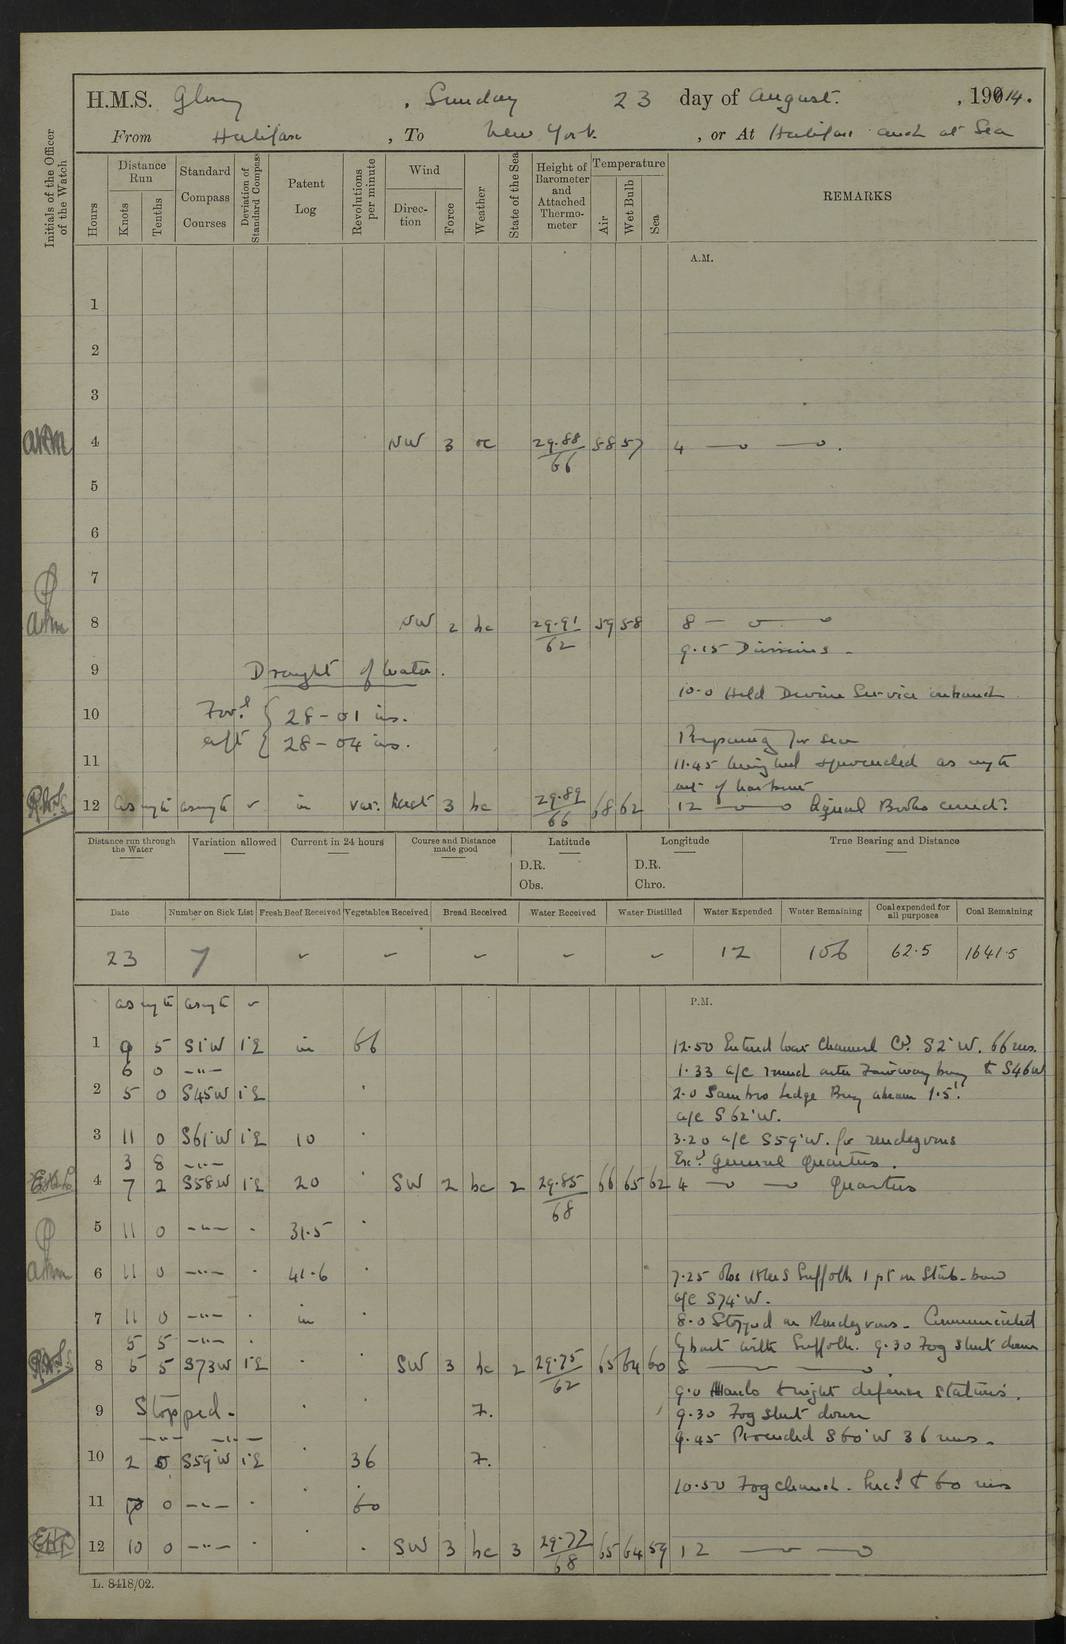 H.M.S. Glory, Sunday 23 day of August, 1914.
From Halifax, To New York, or At Halifax and at Sea
Initials of the Officer of the Watch
Hours
Distance Run
Knots
Tenths
Standard Compass Courses
Deviation of Standard Compass
Patent Log
Revolutions per minute
Wind
Direction
Force
Weather
State of the Sea
Height of Barometer and Attached Thermometer
Temperature
Air
Wet Bulb
Sea
REMARKS
A.M.
1
2
3
4 NW 3 oc 29.88/66 58 57 4
5
6
7
8 NW 2 bc 29.91/62 59 58 8
9.15 Divisions
9 Draught of Water.
10.0 Held Divine Service
10 Ford 28-01 ins.
Preparing for sea
aft 28-04 ins.
11 11.45 Weighed & proceeded as reqte
out of harbour
12 as reqte as reqte in var. West 3 bc 29.89/66 68 62 12 Signal Books correct.
Distance run through the Water
Variation allowed
Current in 24 hours
Course and Distance made good
Latitude
D.R.
Obs.
Longitude
D.R.
Chro.
True Bearing and Distance
Date Number on Sick List Fresh Beef Received Vegetables Received Bread Received Water Received Water Distilled Water Expended Water Remaining Coal expended for all purposes Coal Remaining
23 7 - - - - - 12 106 62.5 1641.5
as reqte as reqte P.M.
1 9 5 S1°W 1°E in 66 12.50 Entered War Channel Co. S2°W. 66 revs.
6 0 -"- 1.33 a/c round outer Fairway buoy to S46W
2 5 0 S45W 1°E 2.0 Sambro Ledge Buoy abeam 1.5'.
a/c S62°W.
3 11 0 S61°W 1°E 10 3.20 a/c S59°W. for rendezvous
3 8 -"- Exd General Quarters.
4 7 2 S58W 1°E 20 SW 2 bc 2 29.85/68 66 65 62 4 Quarters
5 11 0 -"- 31.5
6 11 0 -"- 41.6 7.25 Obs HMS Suffolk 1 pt on Stab-bow
a/c S74°W.
7 11 0 -"- in 8.0 Stopped on Rendezvous. Communicated
5 5 -"- by boat with Suffolk. 9.30 Fog shut down
8 5 5 S73W 1°E SW 3 bc 2 29.75/62 65 64 60 8
9.0 Hands to night defence stations.
9 Stopped. F. 9.30 Fog shut down
9.45 Proceeded S60°W 36 revs.
10 2 5 S59°W 1°E 36 F.
10.50 Fog cleared. Incd to 60 revs
11 7 0 -"- 60
12 10 0 -"- SW 3 bc 3 29.77/68 65 64 59 12
L. 8418/02.